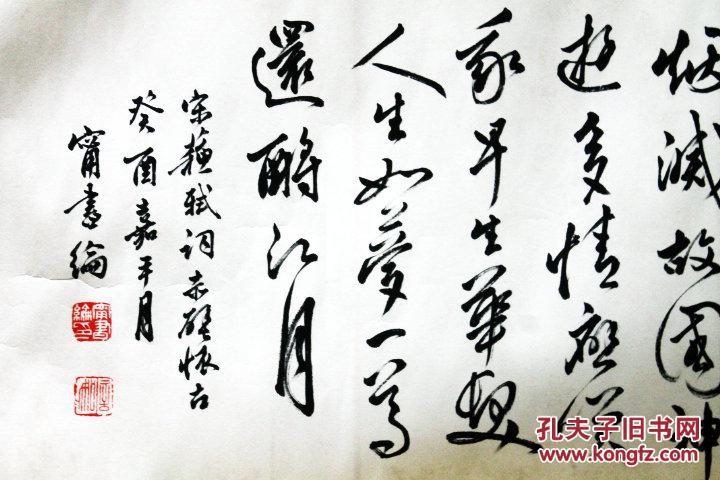 烟滅故國神
遊多情應笑
我早生華髮
人生如夢一尊
還酹江月
宋蘇軾詞赤壁懷古
癸酉嘉平月
甯書綸
甯書綸印
孔夫子旧书网
KONGFZ.COM